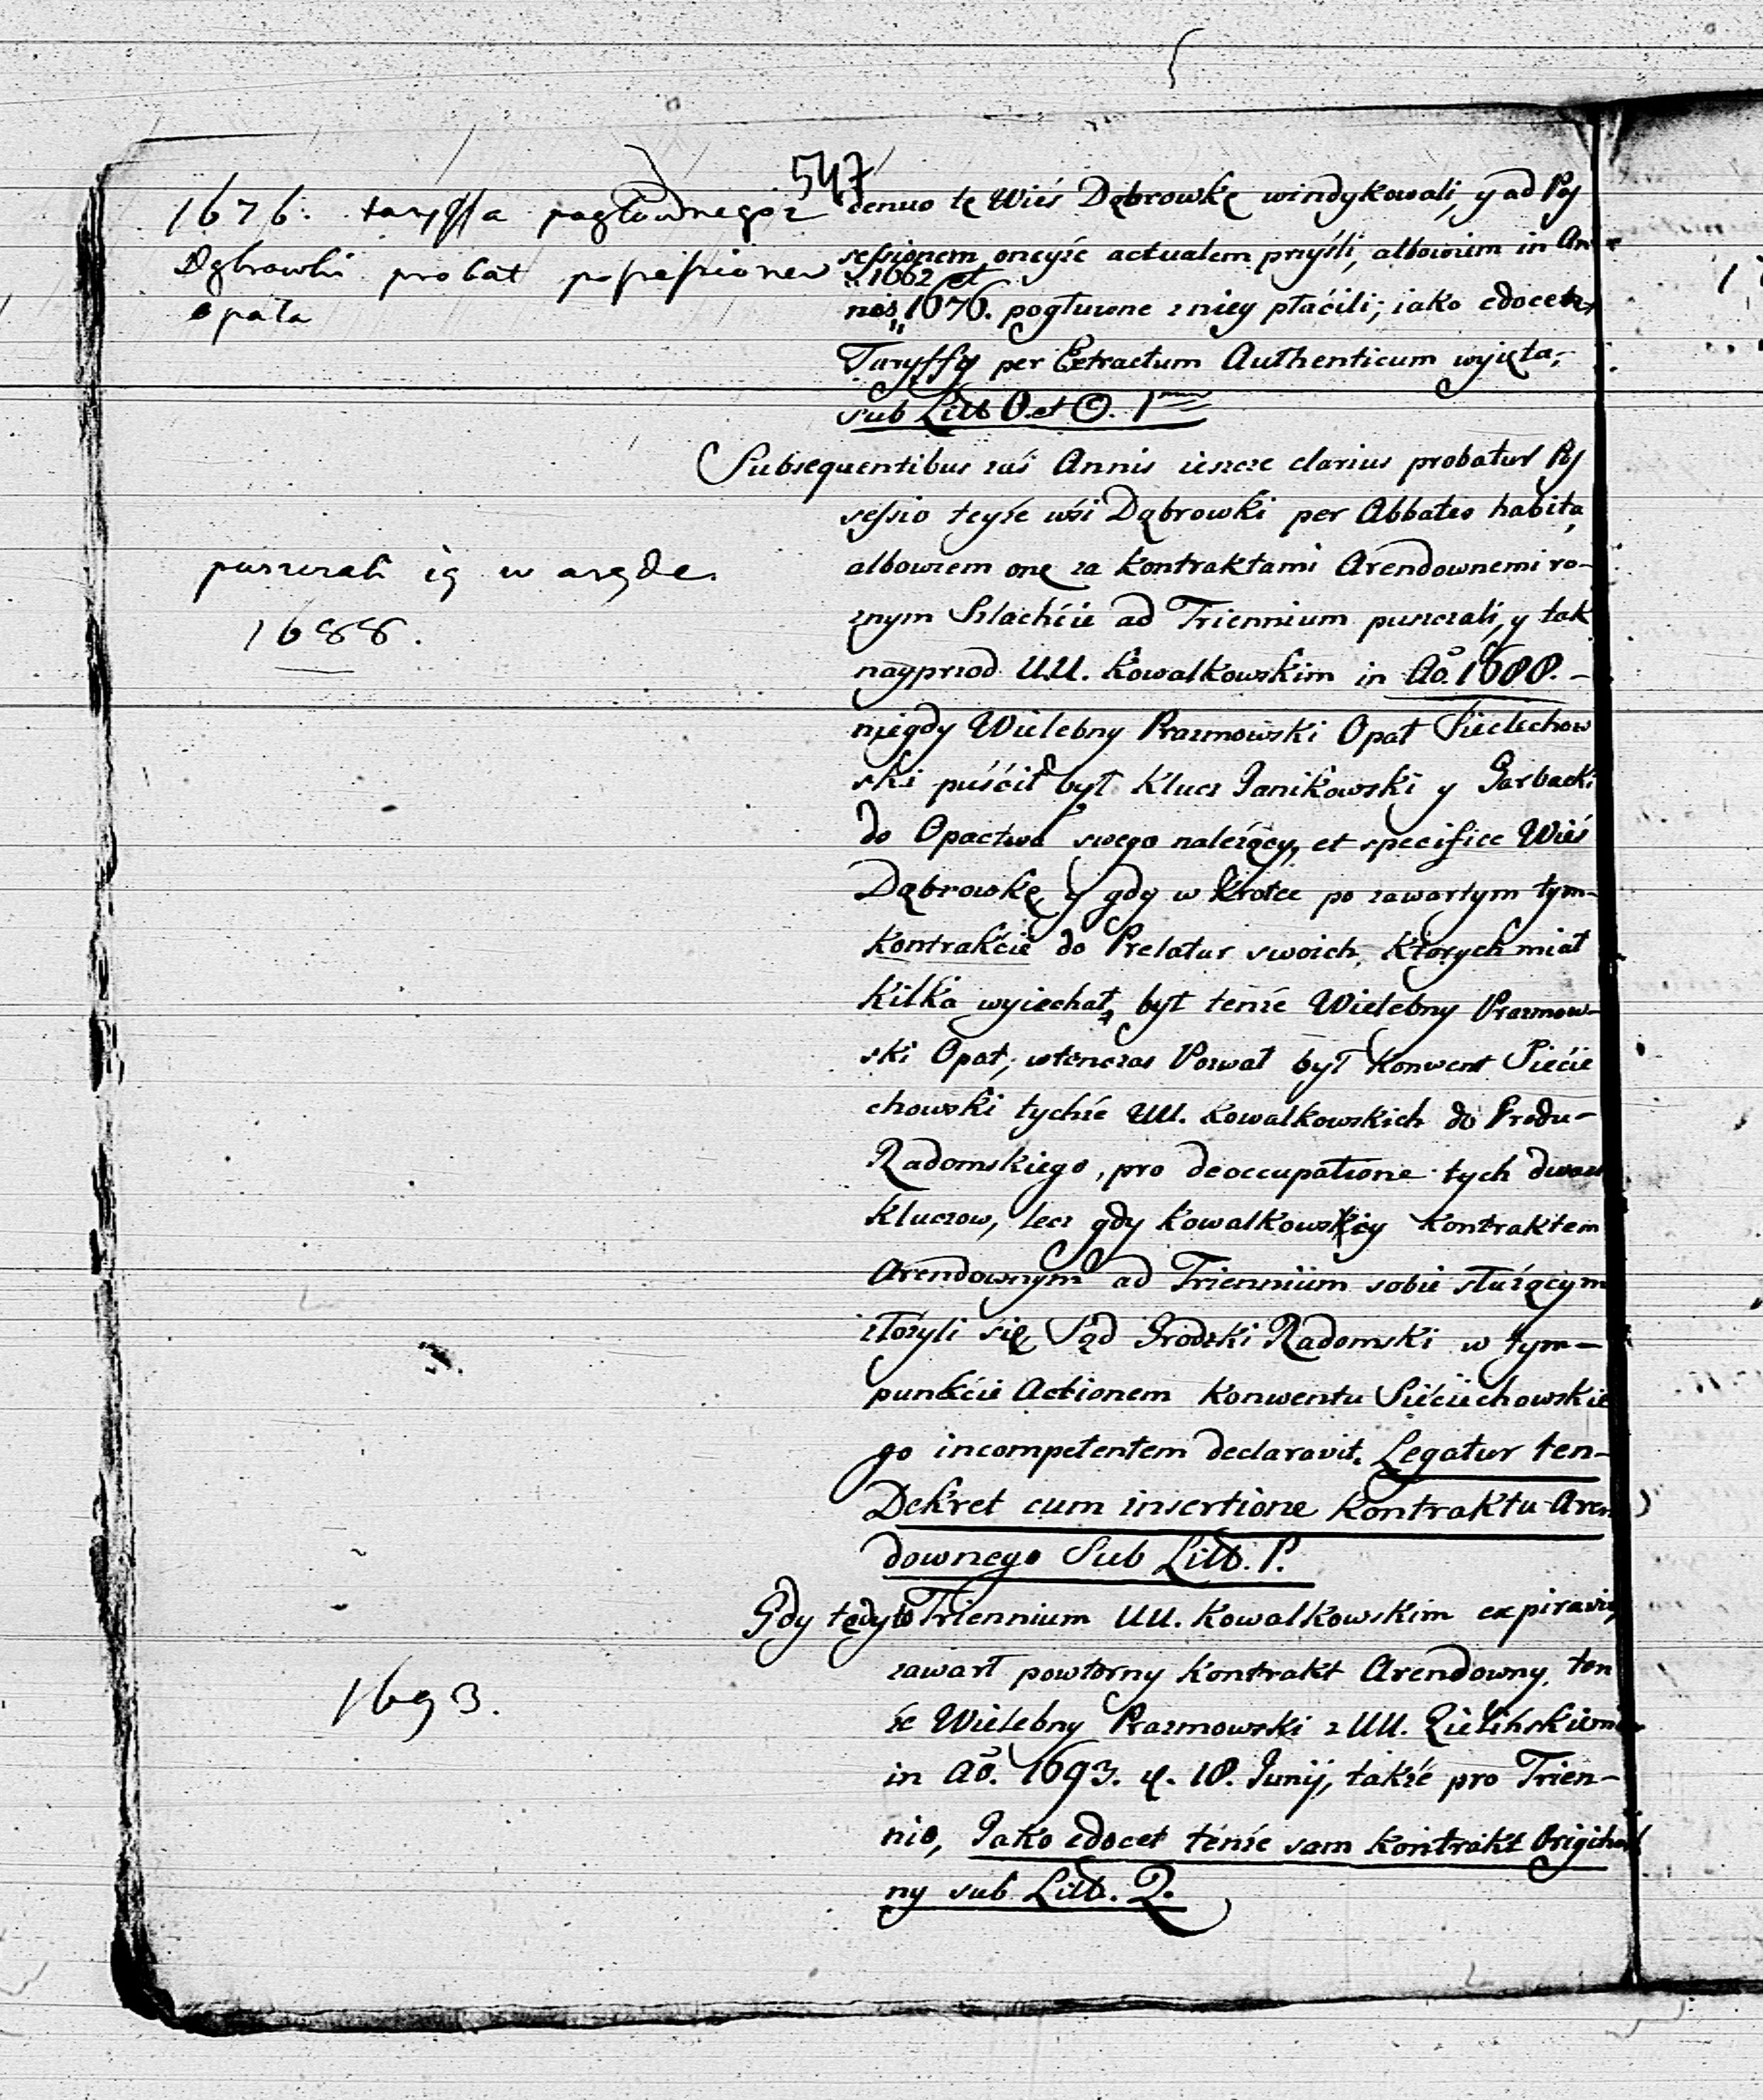 547
1676. taryffa pogłownego z
Dąbrowki probat possessionem
opata
denuo tę Wieś Dąbrowkę windykowali, y ad Pos
sessionem oneyże actualem przyśli, albowiem in An-
1662 et
nis 1676. pogłuwne z niey płaćili; iako edocet
Taryffy per Extractum Authenticum wyięta,
sub Litt O. et O. 1mo
Subsequentibus zaś Annis ieszcze clarius probatur Pos
sessio teyże wśi Dąbrowki per Abbates habita,
albowiem onę za kontraktami Arendownemi ro-
znym Szlachćie ad Triennium puszczali, y tak
puszczali ią w arędę
1688.
nayprzod UU. Kowalkowskim in Ao. 1688. -
niegdy Wielebny Prazmowski Opat Siećiechow
ski puśćił był Klucz Janikowski y Garbacki
do Opactwa swego należący, et specifice Wieś
Dąbrowkę, y gdy w Krotce po zawartym tym-
Kontrakćie do Prelatur swoich, Ktorych miał
Kilka wyiechał, był tenże Wielebny Prazmow-
ski Opat, wtenczas Pozwał był Konwent Siećie
chowski tychże UU. Kowalkowskich do Grodu-
Radomskiego, pro deoccupatione tych dwoch
Kluczow, lecz gdy Kowalkowskicy Kontraktem
Arendownym ad Triennium sobie służącym
złożyli się, Sąd Grodzki Radomski w tym-
punkćie Actionem Konwentu Siećiechowskie
go incompetentem declaravit. Legatur ten-
Dekret cum insertione Kontraktu Aren
downego Sub Litt. P.
Gdy tędy to Triennium UU. Kowalkowskim expiravit,
zawarł powtorny Kontrakt Arendowny, ten
1693.
że Wielebny Prazmowski z UU. Zielińskiemi
in Ao. 1693. d. 18. Junij, także pro Trien-
nio, Jako edocet tenże sam Kontrakt Original
ny sub Litt. Q.